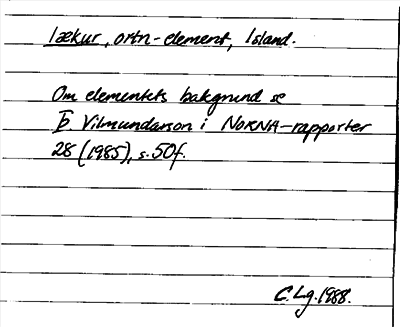 lækur, ortn-element, Island.
Om elementets bakgrund se
Þ. Vilmundarson i NORNA-rapporter
28 (1985), s. 50f.
C. Lg. 1988.